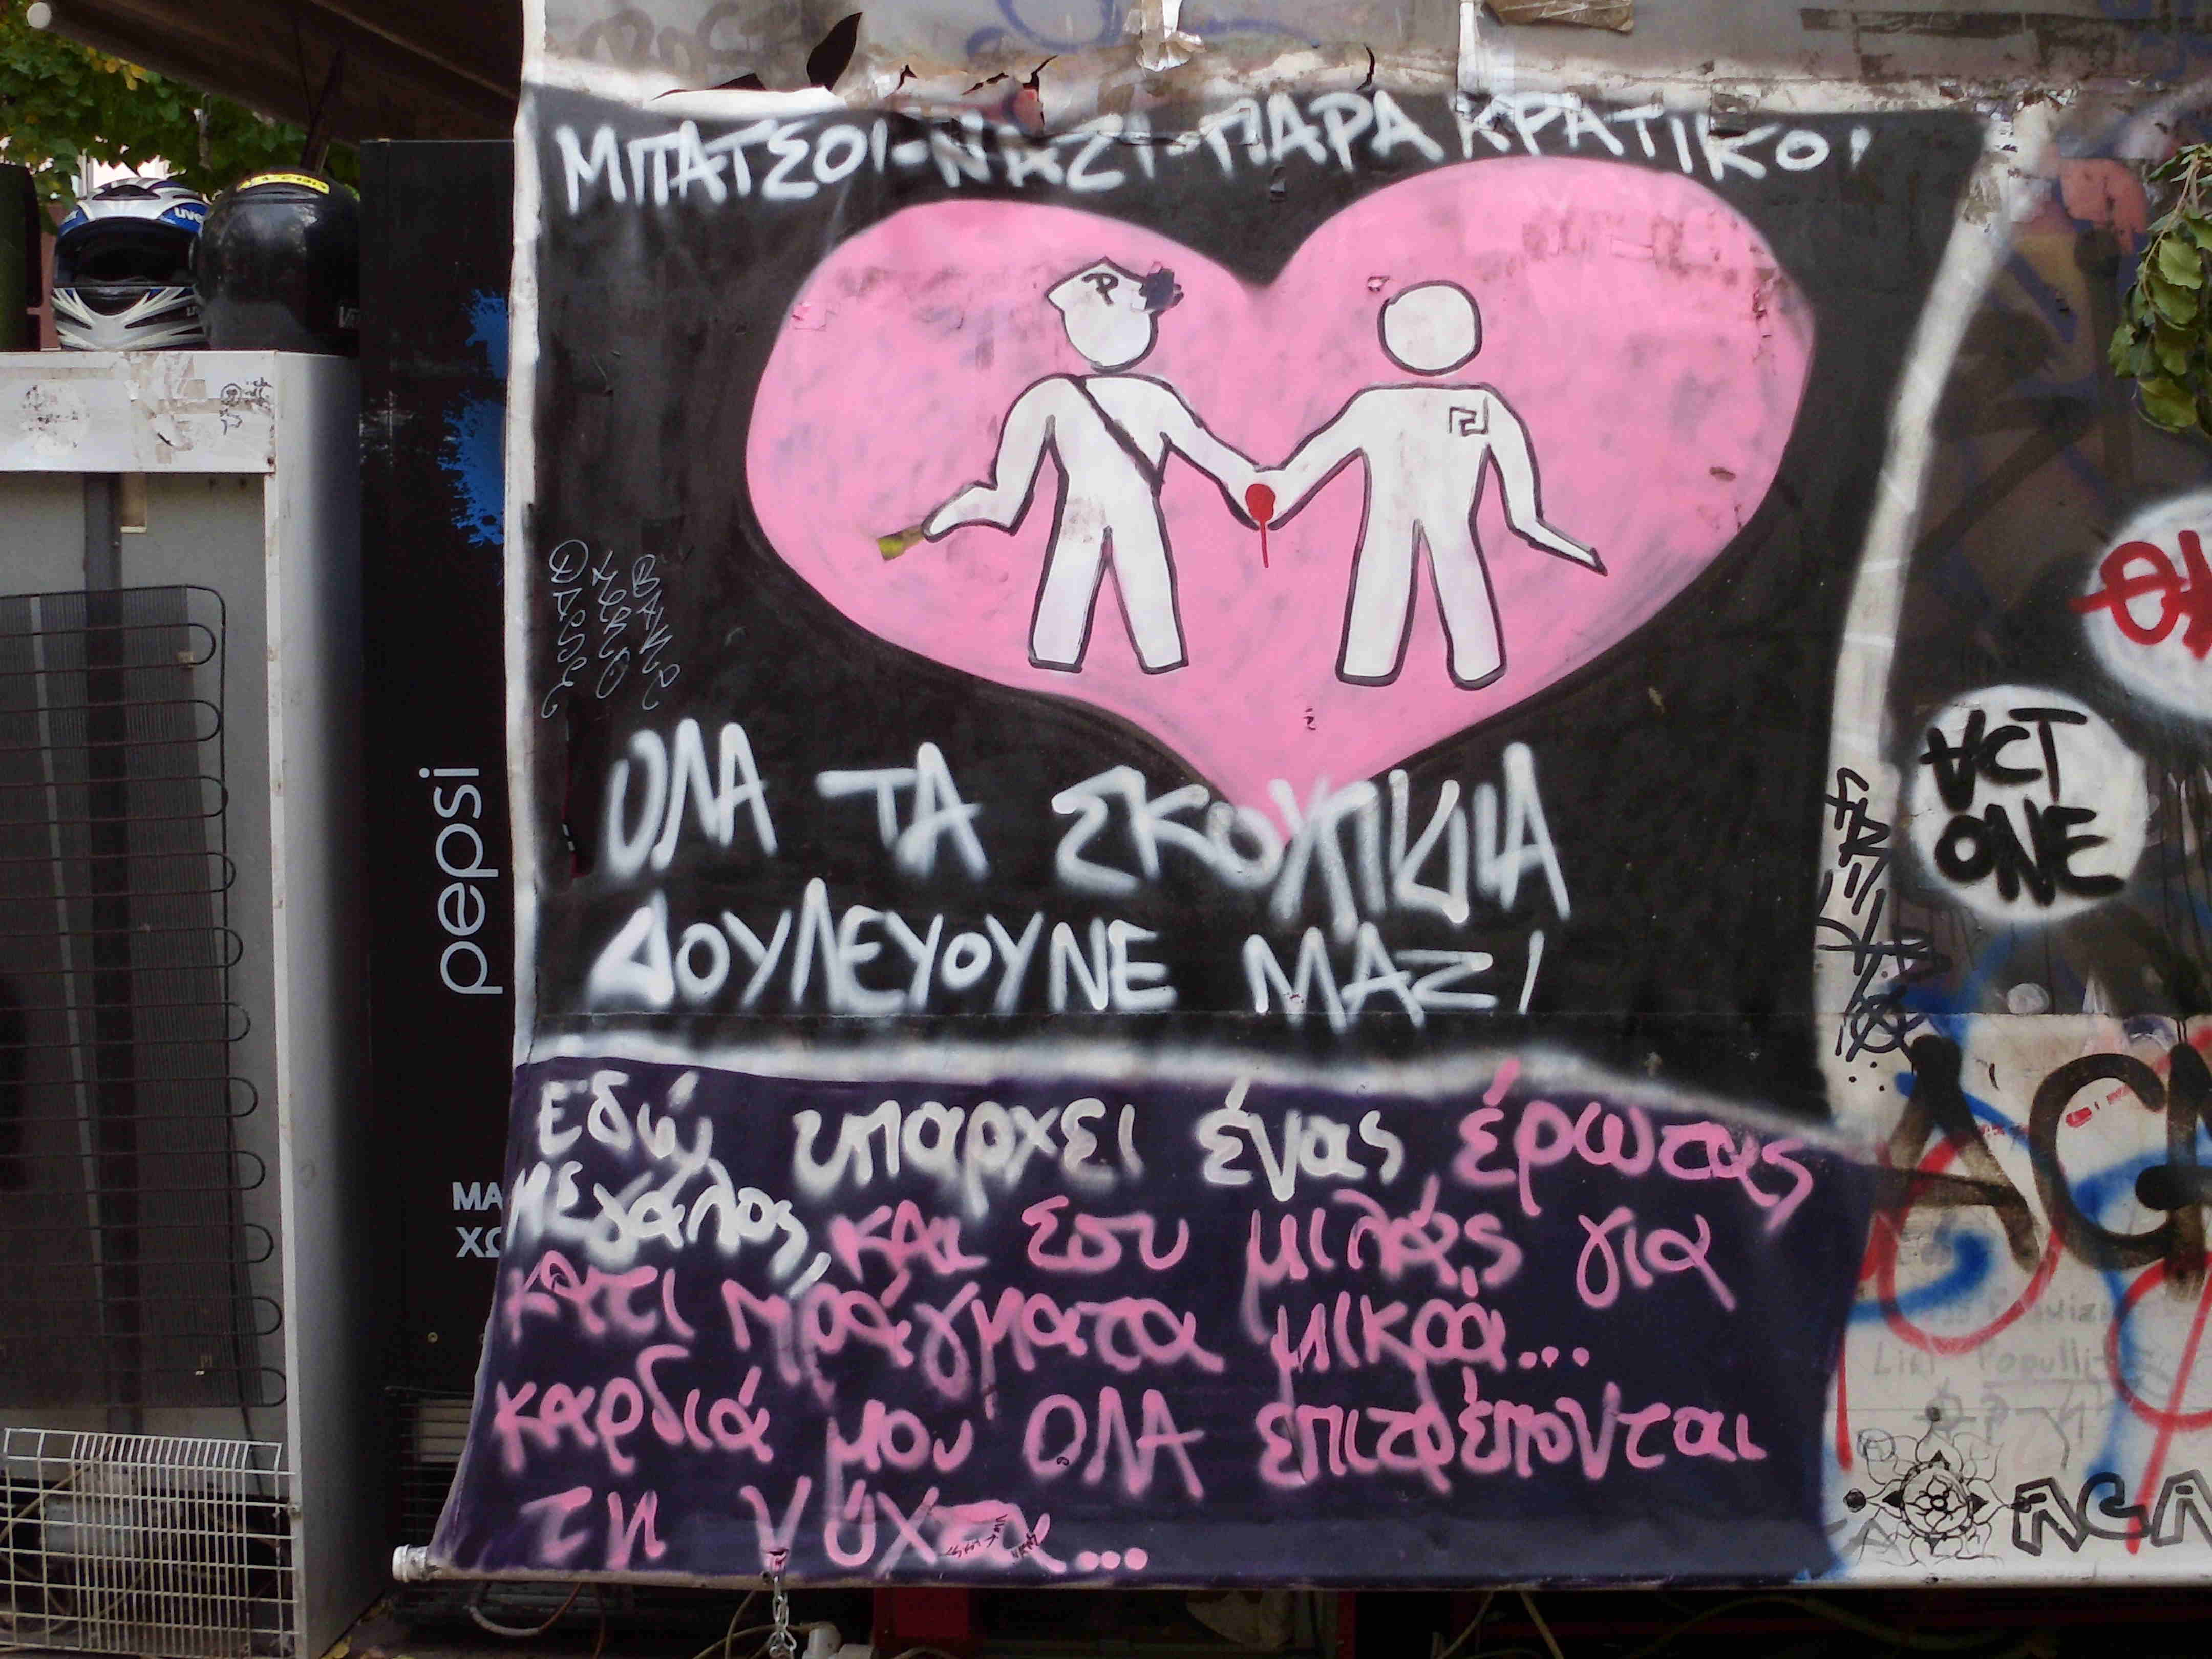 ΜΠΑΤΣΟΙ-ΝΑΖΙ-ΠΑΡΑΚΡΑΤΙΚΟΙ
P
ΟΛΑ ΤΑ ΣΚΟΥΠΙΔΙΑ
ΔΟΥΛΕΥΟΥΝΕ ΜΑΖΙ
Εδώ υπαρχει ένας έρωτας
μεγάλος, και εσυ μιλάς για
κάτι πράγματα μικρά...
καρδιά μου ΟΛΑ επιτρέπονται
τη νύχτα...
pepsi
ΜΑ
ΧΩ
uvex
ACT
ONE